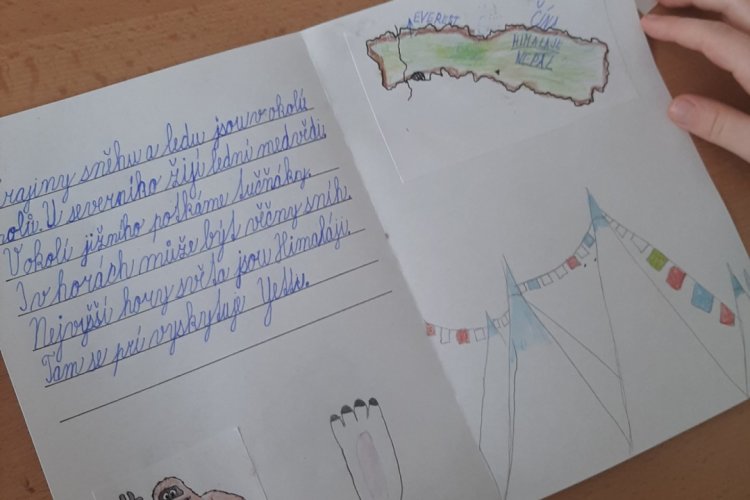 krajiny sněhu a ledu jsou v okolí
polů. U severního žijí lední medvědi
V okolí jižního potkáme tučňáky.
I v horách může být věčný sníh.
Nejvyšší hory světa jsou Himaláje.
Tam se prý vyskytuje Yetti.
EVEREST
ČÍNA
HIMALAJE
NEPÁL